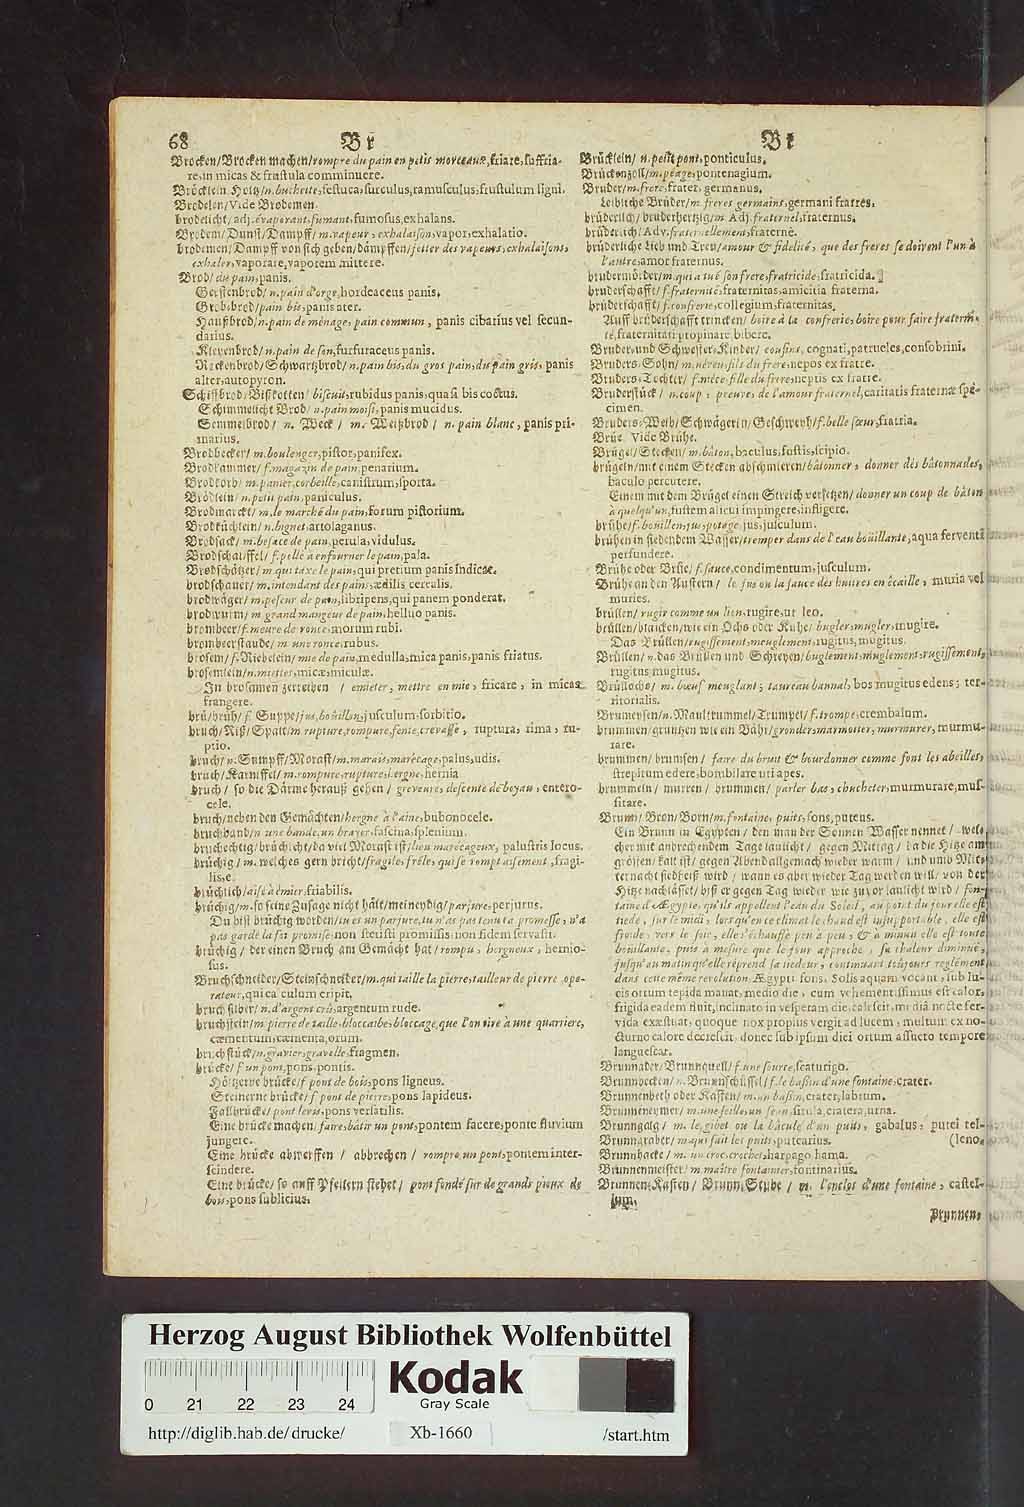 68 Br Br
Brocken/Brocken machen/rompre du pain en petis morceaux, friare, suffria-
re, in micas & frustula comminuere.
Bröcklein Holtz/n. buchette, festuca, surculus, ramusculus, frustulum ligni.
Brodelen/Vide Brodemen.
brodelicht/adj. évaporant, fumant, fumosus, exhalans.
Brodem/Dunst/Dampff/m. vapeur, exhalaison, vapor, exhalatio.
brodemen/Dampff von sich geben/dämpffen/jetter des vapeurs, exhalaisons,
exhaler, vaporare, vaporem mittere.
Brod/du pain, panis.
Gerstenbrod/n. pain d'orge, hordeaceus panis.
Grobbrod/pain bis, panis ater.
Haußbrod/n. pain de ménage, pain commun, panis cibarius vel secun-
darius.
Kleyenbrod/n. pain de son, furfuraceus panis.
Rockenbrod/Schwartzbrod/n. pain bis, du gros pain, du pain gris, panis
alter, autopyron.
Schiffbrod/Bißkotten/biscuit, rubidus panis, quasi bis coctus.
Schimmelicht Brod/n. pain moisi, panis mucidus.
Semmelbrod/n. Weck/m. Weißbrod/n. pain blanc, panis pri-
marius.
Brodbecker/m. boulenger, pistor, panifex.
Brodkammer/f. magazin de pain, penarium.
Brodkorb/m. panier, corbeille, canistrum, sporta.
Brödlein/n. petit pain, paniculus.
Brodmarckt/m. le marché du pain, forum pistorium.
Brodküchlein/n. bignet, artolaganus.
Brodsack/m. besace de pain, perula, vidulus.
Brodschauffel/f. pelle à enfourner le pain, pala.
Brodschätzer/m. qui taxe le pain, qui pretium panis Indicat.
brodschauer/m. intendant des pains, ædilis cerealis.
brodwäger/m. peseur de pain, libripens, qui panem ponderat.
brodwurm/m. grand mangeur de pain, helluo panis.
brombeer/f. meure de ronce, morum rubi.
brombeerstaude/m. une ronce, rubus.
brosem/f. Riebelein/mie de pain, medulla, mica panis, panis friatus.
brosemlein/n. miettes, micæ, miculæ.
In brosamen zerreiben/emieter, mettre en mie, fricare, in micas
frangere.
brü/brüh/f. Suppe/jus, bouillon, jusculum, sorbitio.
bruch/Riß/Spalt/m. rupture, rompure, fente, crevasse, ruptura, rima, ru-
ptio.
bruch/n. Sumpff/Morast/m. marais, marécage, palus, udis.
bruch/Karniffel/m. rompure, rupture, hergne, hernia
bruch/so die Därme herauß gehen/greveure, descente de boyau, entero-
cele.
bruch/neben den Gemächten/hergne à l'aine, bubonocele.
bruchband/n. une bande, un brayer, fascina, splenium.
bruchechtig/brüchicht/da viel Morast ist/lieu marécageux, palustris locus.
brüchig/m. welches gern bricht/fragile, frêle, qui se rompt aisement, fragi-
lis, e.
brüchlich/aisé à émier, friabilis.
brüchig/m. so seine Zusage nicht hält/meineydig/parjure, perjurus.
Du bist brüchig worden/tu es un parjure, tu n'as pas tenu ta promesse, n'a
pas gardé la foi promise, non stetisti promissis, non fidem servasti.
brüchig/der einen Bruch am Gemächt hat/rompu, hergneux, hernio-
sus.
Bruchschneider/Steinschneider/m. qui taille la pierre, tailleur de pierre, ope-
rateur, qui calculum eripit.
bruch silber/n. d'argent crü, argentum rude.
bruchstein/m. pierre de taille, bloccaibe, bloccage, que l'on tire à une quarriere,
cæmentum, cæmenta, orum.
bruchstück/n. gravier, gravelle, fragmen.
brücke/f. un pont, pons, pontis.
Höltzerne brücke/f. pont de bois, pons ligneus.
Steinerne brücke/f. pont de pierre, pons lapideus.
Fallbrücke/pont levis, pons versatilis.
Eine brücke machen/faire, bâtir un pont, pontem facere, ponte fluvium
jungere.
Eine brücke abwerffen/abbrechen/rompre un pont, pontem inter-
scindere.
Eine brücke/so auff Pfeilern stehet/pont fondé sur de grands pieux de
bois, pons sublicius.
Brücklein/n. petit pont, ponticulus.
Brückenzoll/m. péage, pontenagium.
Bruder/m. frere, frater, germanus.
Leibliche Brüder/m. freres germains, germani fratres.
brüderlich/bruderhertzig/m. Adj. fraternel, fraternus.
brüderlich/Adv. fraternellement, fraternè.
brüderliche Lieb und Treu/amour & fidelité, que des freres se doivent l'un à
l'autre, amor fraternus.
brudermörder/m. qui a tué son frere, fratricide, fratricida.
bruderschafft/f. fraternité, fraternitas, amicitia fraterna.
brüderschafft/f. confrerie, collegium, fraternitas.
Auff brüderschafft trincken/boire à la confrerie, boire pour faire fraterni-
té, fraternitati propinare, bibere.
Bruder- und Schwester-Kinder/cousins, cognati, patrueles, consobrini.
Bruders-Sohn/m. néveu, fils du frere, nepos ex fratre.
Bruders-Tochter/f. niéce, fille du frere, neptis ex fratre.
Bruderstück/n. coup, preuve, de l'amour fraternel, caritatis fraternæ spe-
cimen.
Bruders-Weib/Schwägerin/Geschweyh/f. belle sœur, fratria.
Brüe/Vide Brühe.
Brügel/Stecken/m. bâton, baculus, fustis, scipio.
brügeln/mit einem Stecken abschmieren/bâtonner, donner des bâtonnades,
baculo percutere.
Einem mit dem Brügel einen Streich versetzen/donner un coup de bâton
à quelqu'un, fustem alicui impingere, infligere.
brühe/f. bouillon, jus, potage, jus, julculum.
brühen in siedendem Wasser/tremper dans de l'eau boüillante, aqua ferventi
perfundere.
Brühe oder Brüe/f. sauce, condimentum, jusculum.
Brühe an den Austern/le jus ou la sauce des huitres en écaille, muria vel
muries.
brüllen/rugir comme un lion, rugire, ut leo.
brüllen/blaicken/wie ein Ochs oder Kuhe/bugler, mugler, mugire.
Das Brüllen/rugissement, meuglement, rugitus, mugitus.
Brüllen/n. das Brüllen und Schreyen/buglement, muglement, rugissement,
rugitus, mugitus.
Brüllochs/m. bœuf meuglant; taureau bannal, bos mugitus edens; ter-
ritorialis.
Brumeysen/n. Maultrummel/Trumpel/f. trompe, crembalum.
brummen/gruntzen wie ein Bähr/gronder, marmotter, murmurer, murmu-
rare.
brummen/brumsen/faire du bruit & bourdonner comme font les abeilles,
strepitum edere, bombilare uti apes.
brummeln/murren/brummen/parler bas, chucheter, murmurare, mus-
sitare.
Brunn/Bron/Born/m. fontaine, puits, fons, puteus.
Ein Brunn in Egypten/den man der Sonnen Wasser nennet/wel-
cher mit anbrechendem Tage laulicht/gegen Mittag/da die Hitze am
grösten/kalt ist/gegen Abend allgemach wieder warm/und umb Mit-
ternacht siedheiß wird/wann es aber wieder Tag werden will/von der
Hitze nachlässet/biß er gegen Tag wieder wie zuvor laulicht wird/fon-
taine d'Ægypte, qu'ils appellent l'eau du Soleil, au point du jour elle est
tiede, sur le midi, lors qu'en ce climat le chaud est insupportable, elle est
froide, vers le soir, elle s'échauffe peu à peu, & à minuit elle est toute
boüillante, puis à mesure que le jour approche, sa chaleur diminuë,
jusqu'au matin qu'elle réprend sa tiedeur, continuant toûjours reglément
dans cette même revolution, Ægypti fons, Solis aquam vocant, sub lu-
cis ortum tepida manat, medio die, cum vehementissimus est calor,
frigida eadem fluit, inclinato in vesperam die, calescit, mediâ nocte fer-
vida exæstuat, quoque nox propius vergit ad lucem, multum ex no-
cturno calore decrescit, donec sub ipsum diei ortum assueto tempore
languescat.
Brunnader/Brunnquell/f. une source, scaturigo.
Brunnbecken/n. Brunnschüssel/f. le bassin d'une fontaine, crater.
Brunnenbeth oder Kasten/m. un bassin, crater, labrum.
Brunneneymer/m. une seille, un seau, situla, cratera, urna.
Brunngalg/m. le gibet ou la bâcule d'un puits, gabalus, putei tel-
Brunngraber/m. qui fait les puits, putearius. (leno.
Brunnhacke/m. un croc, crochet, harpago, hama.
Brunnenmeister/m. maître fontainier, fontinarius.
Brunnen-Kasten/Brunn-Stube/m. l'enclos d'une fontaine, castel-
lum.
Brunnen-
Herzog August Bibliothek Wolfenbüttel
0 21 22 23 24
Kodak
Gray Scale
http://diglib.hab.de/drucke/ Xb-1660 /start.htm